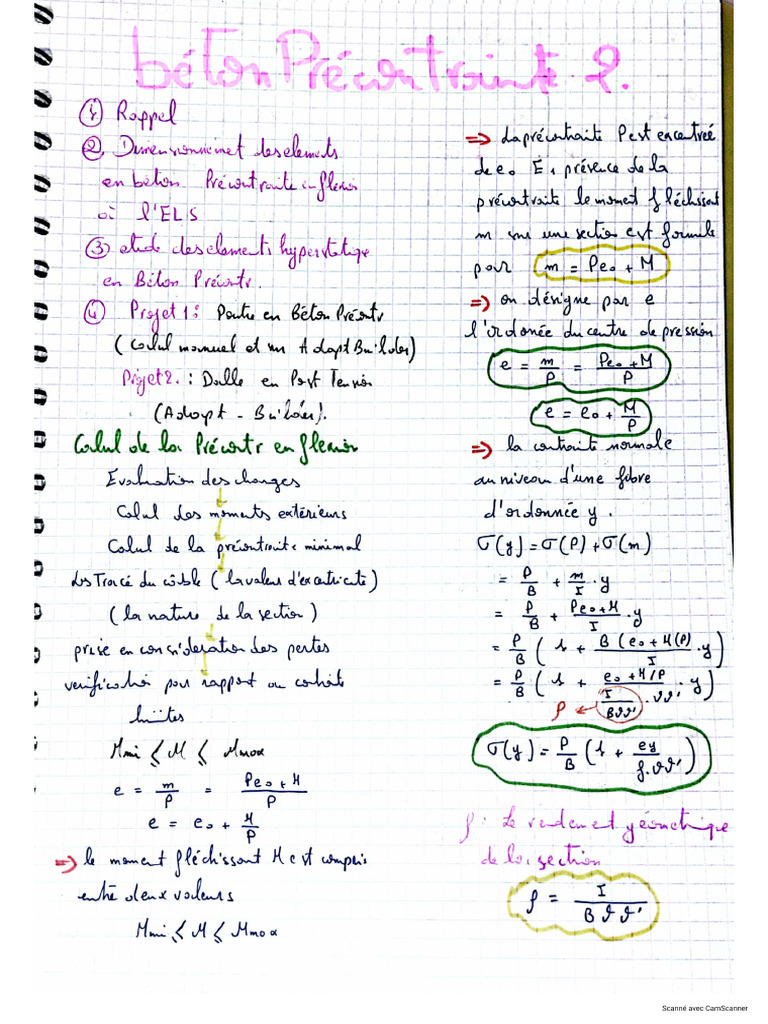 béton Précontrainte 2.
① Rappel
② Dimensionnement des elements
en béton Précontrainte en flexion
à l'ELS
③ etude des elements hyperstatique
en Béton Précontr.
④ Projet 1 : Poutre en Béton Précontr
(Calcul manuel et sur Adapt Builder)
Projet 2. : Dalle en Post Tension
(Adapt - Builder).
Calcul de la Précontr en flexion
Evaluation des charges
Calcul des moments extérieurs
Calcul de la précontrainte minimal
des Tracé du câble (la valeur d'excentricité)
(la nature de la section)
prise en consideration des pertes
verification par rapport au contrainte
limites
Mmin ⩽ M ⩽ Mmax
e = m/P = (Pe₀ + M)/P
e = e₀ + M/P
=> le moment fléchissant M est compris
entre deux valeurs
Mmin ⩽ M ⩽ Mmax
=> La précontrainte P est excentreé
de e₀ En présence de la
précontrainte le moment fléchissant
m sur une section est formule
pour m = Pe₀ + M
=> on désigne par e
l'ordonée du centre de pression
e = m/P = (Pe₀ + M)/P
e = e₀ + M/P
=> la contrainte normale
au niveau d'une fibre
d'ordonnée y.
σ(y) = σ(P) + σ(m)
= P/B + m/I . y
= P/B + (Pe₀ + M)/I . y
= P/B (1 + B(e₀ + M/P)/I . y)
= P/B (1 + (e₀ + M/P)/(I/Bvv' . vv') . y)
ρ
σ(y) = P/B (1 + ey/(ρ.vv'))
ρ : Le rendement géometrique
de la section
ρ = I/(B v v')
Scanné avec CamScanner